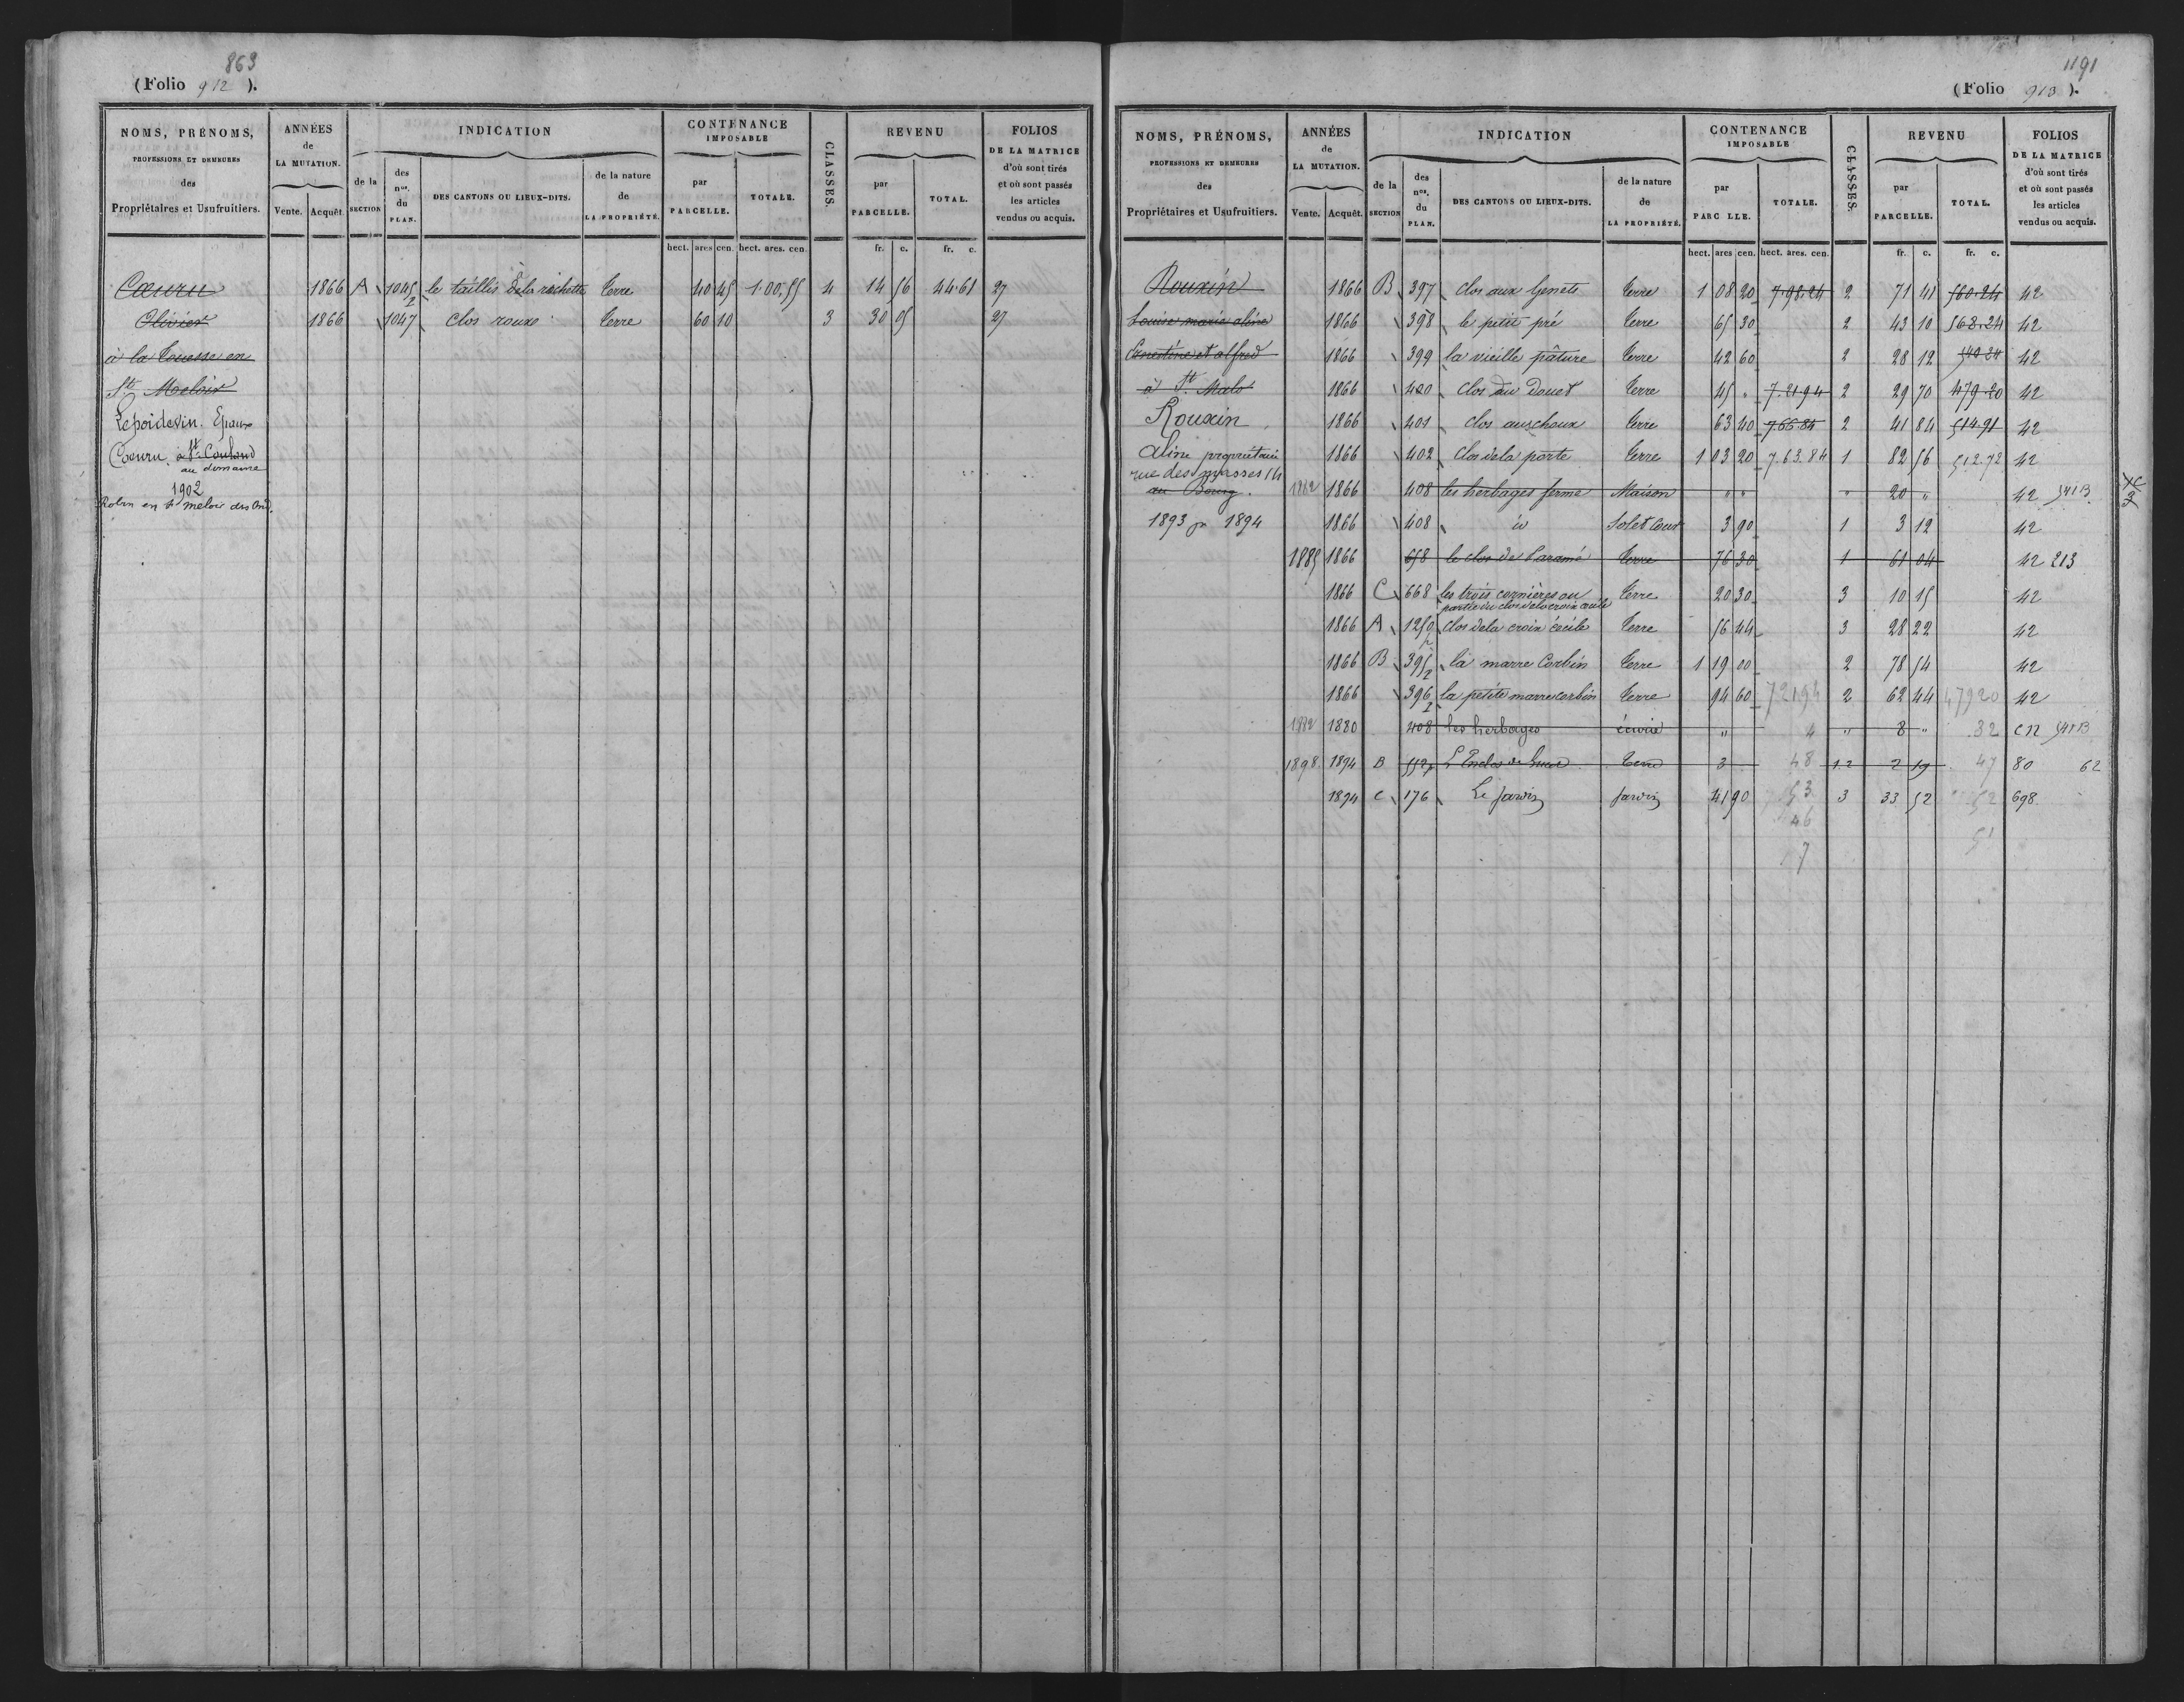 863
(Folio 912 ).
NOMS, PRÉNOMS, PROFESSIONS ET DEMEURES des Propriétaires et Usufruitiers.
ANNÉES de LA MUTATION. Vente. Acquêt.
INDICATION
de la SECTION
des nos. du PLAN.
DES CANTONS OU LIEUX-DITS.
de la nature de LA PROPRIÉTÉ.
CONTENANCE IMPOSABLE
par PARCELLE. TOTALE.
CLASSES.
REVENU
par PARCELLE. TOTAL.
FOLIOS DE LA MATRICE d'où sont tirés et où sont passés les articles vendus ou acquis.
hect. ares cen. hect. ares. cen. fr. c. fr. c.
Cœuru 1866 A 1045/2 le taillis de la rochette Terre 40 45 1.00,55 4 14 56 44.61 27
Olivier 1866 1047 clos roux Terre 60 10 3 30 05 27
à la Touesse en
St Meloir
Lepoidevin. Epouse
Cœuru à St Coulomb
au domaine
1902
Robin en St meloir des Ond.
1191
(Folio 913 ).
NOMS, PRÉNOMS, PROFESSIONS ET DEMEURES des Propriétaires et Usufruitiers.
ANNÉES de LA MUTATION. Vente. Acquêt.
INDICATION
de la SECTION
des nos. du PLAN.
DES CANTONS OU LIEUX-DITS.
de la nature de LA PROPRIÉTÉ.
CONTENANCE IMPOSABLE
par PARC LLE. TOTALE.
CLASSES.
REVENU
par PARCELLE. TOTAL.
FOLIOS DE LA MATRICE d'où sont tirés et où sont passés les articles vendus ou acquis.
hect. ares cen. hect. ares. cen. fr. c. fr. c.
Rouxin 1866 B 397 clos aux Genets Terre 1 08 20 7.98.24 2 71 41 560.24 42
Louise marie aline 1866 398 le petit pré Terre 65 30 2 43 10 568.24 42
Ernestine et alfred 1866 399 la vieille pâture Terre 42 60 2 28 12 540 24 42
à St. Malo 1866 400 clos du Douet Terre 45 " 7.21.94 2 29 70 479.20 42
Rouxin 1866 401 clos aux choux Terre 63 40 7.66.84 2 41 84 514.91 42
aline propriétaire 1866 402 clos de la porte Terre 1 03 20 7.63.84 1 82 56 512.72 42
rue des masses 14
au Bourg. 1882 1866 408 les herbages ferme Maison " " " 20 " 42 541 B
1893 pr 1894 1866 408 id Sol et Cour 3 90 1 3 12 42
1885 1866 658 le clos de Paramé Terre 76 30 1 61 04 42 213
1866 C 668 les trois cornières ou Terre 20 30 3 10 15 42
partie du clos de la croix cécile
1866 A 1250 p clos de la croix cécile Terre 56 44 3 28 22 42
1866 B 395/2 la marre Corbin Terre 1 19 00 2 78 54 42
1866 396/2 la petite marre corbin Terre 94 60 72194 2 62 44 47920 42
1882 1880 408 les herbages écurie " 4 " 8 " 32 CN 541 B
1898 1894 B 552 p L'Enclos de Terre 3 48 1.2 2 19 47 80 62
1894 C 176 Le Jardin Jardin 41 90 53 3 33 52 52 698
46
51
7